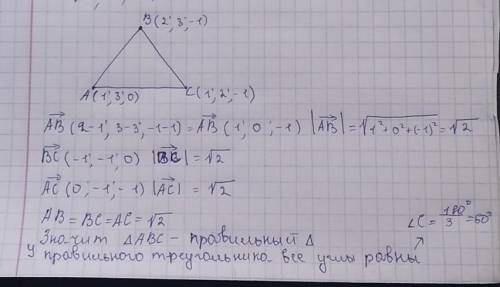 B(2; 3; -1)
A(1; 3; 0) C(1; 2; -1)
AB(2-1; 3-3; -1-1) = AB(1; 0; -1) |AB| = √1²+0²+(-1)² = √2
BC(-1; -1; 0) |BC| = √2
AC(0; -1; -1) |AC| = √2
AB = BC = AC = √2
∠C = 180°/3 = 60°
Значит △ABC - правильный △
У правильного треугольника все углы равны